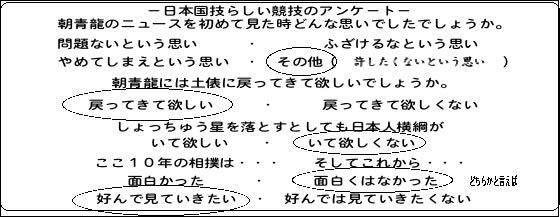 －日本国技らしい競技のアンケート－
朝青龍のニュースを初めて見た時どんな思いでしたでしょうか。
問題ないという思い ・ ふざけるなという思い
やめてしまえという思い ・ その他( 許したくないという思い )
朝青龍には土俵に戻ってきて欲しいでしょうか。
戻ってきて欲しい ・ 戻ってきて欲しくない
しょっちゅう星を落とすとしても日本人横綱が
いて欲しい ・ いて欲しくない
ここ10年の相撲は・・・ そしてこれから・・・
面白かった ・ 面白くはなかった どちらかと言えば
好んで見ていきたい ・ 好んでは見ていきたくない